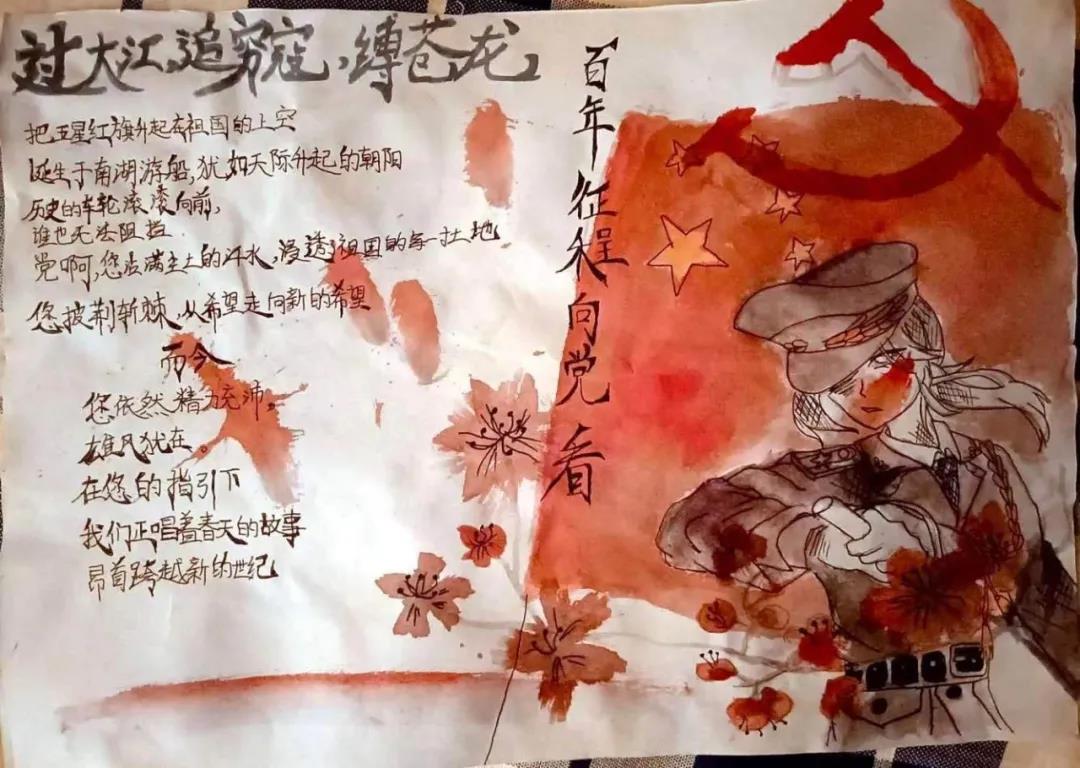 过大江,追穷寇,缚苍龙,
百年征程向党看
把五星红旗升起在祖国的上空
诞生于南湖游船,犹如天际升起的朝阳
历史的车轮滚滚向前,
谁也无法阻挡
党啊,您沾满尘土的汗水,浸透祖国的每一块土地
您披荆斩棘,从希望走向新的希望
而今
您依然精力充沛,
雄风犹在。
在您的指引下
我们正唱着春天的故事
昂首跨越新的世纪